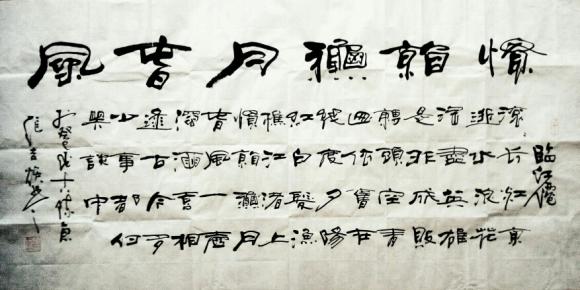 慣看龝月旾風
臨江僊
滚滚長江東
逝水浪花
淘盡英雄
是非成敗
轉頭空青
山依舊在
幾度夕陽
紅白髮漁
樵江渚上
慣看龝月
旾風一壺
濁酒喜相
逢古今多
少事都付
笑談中